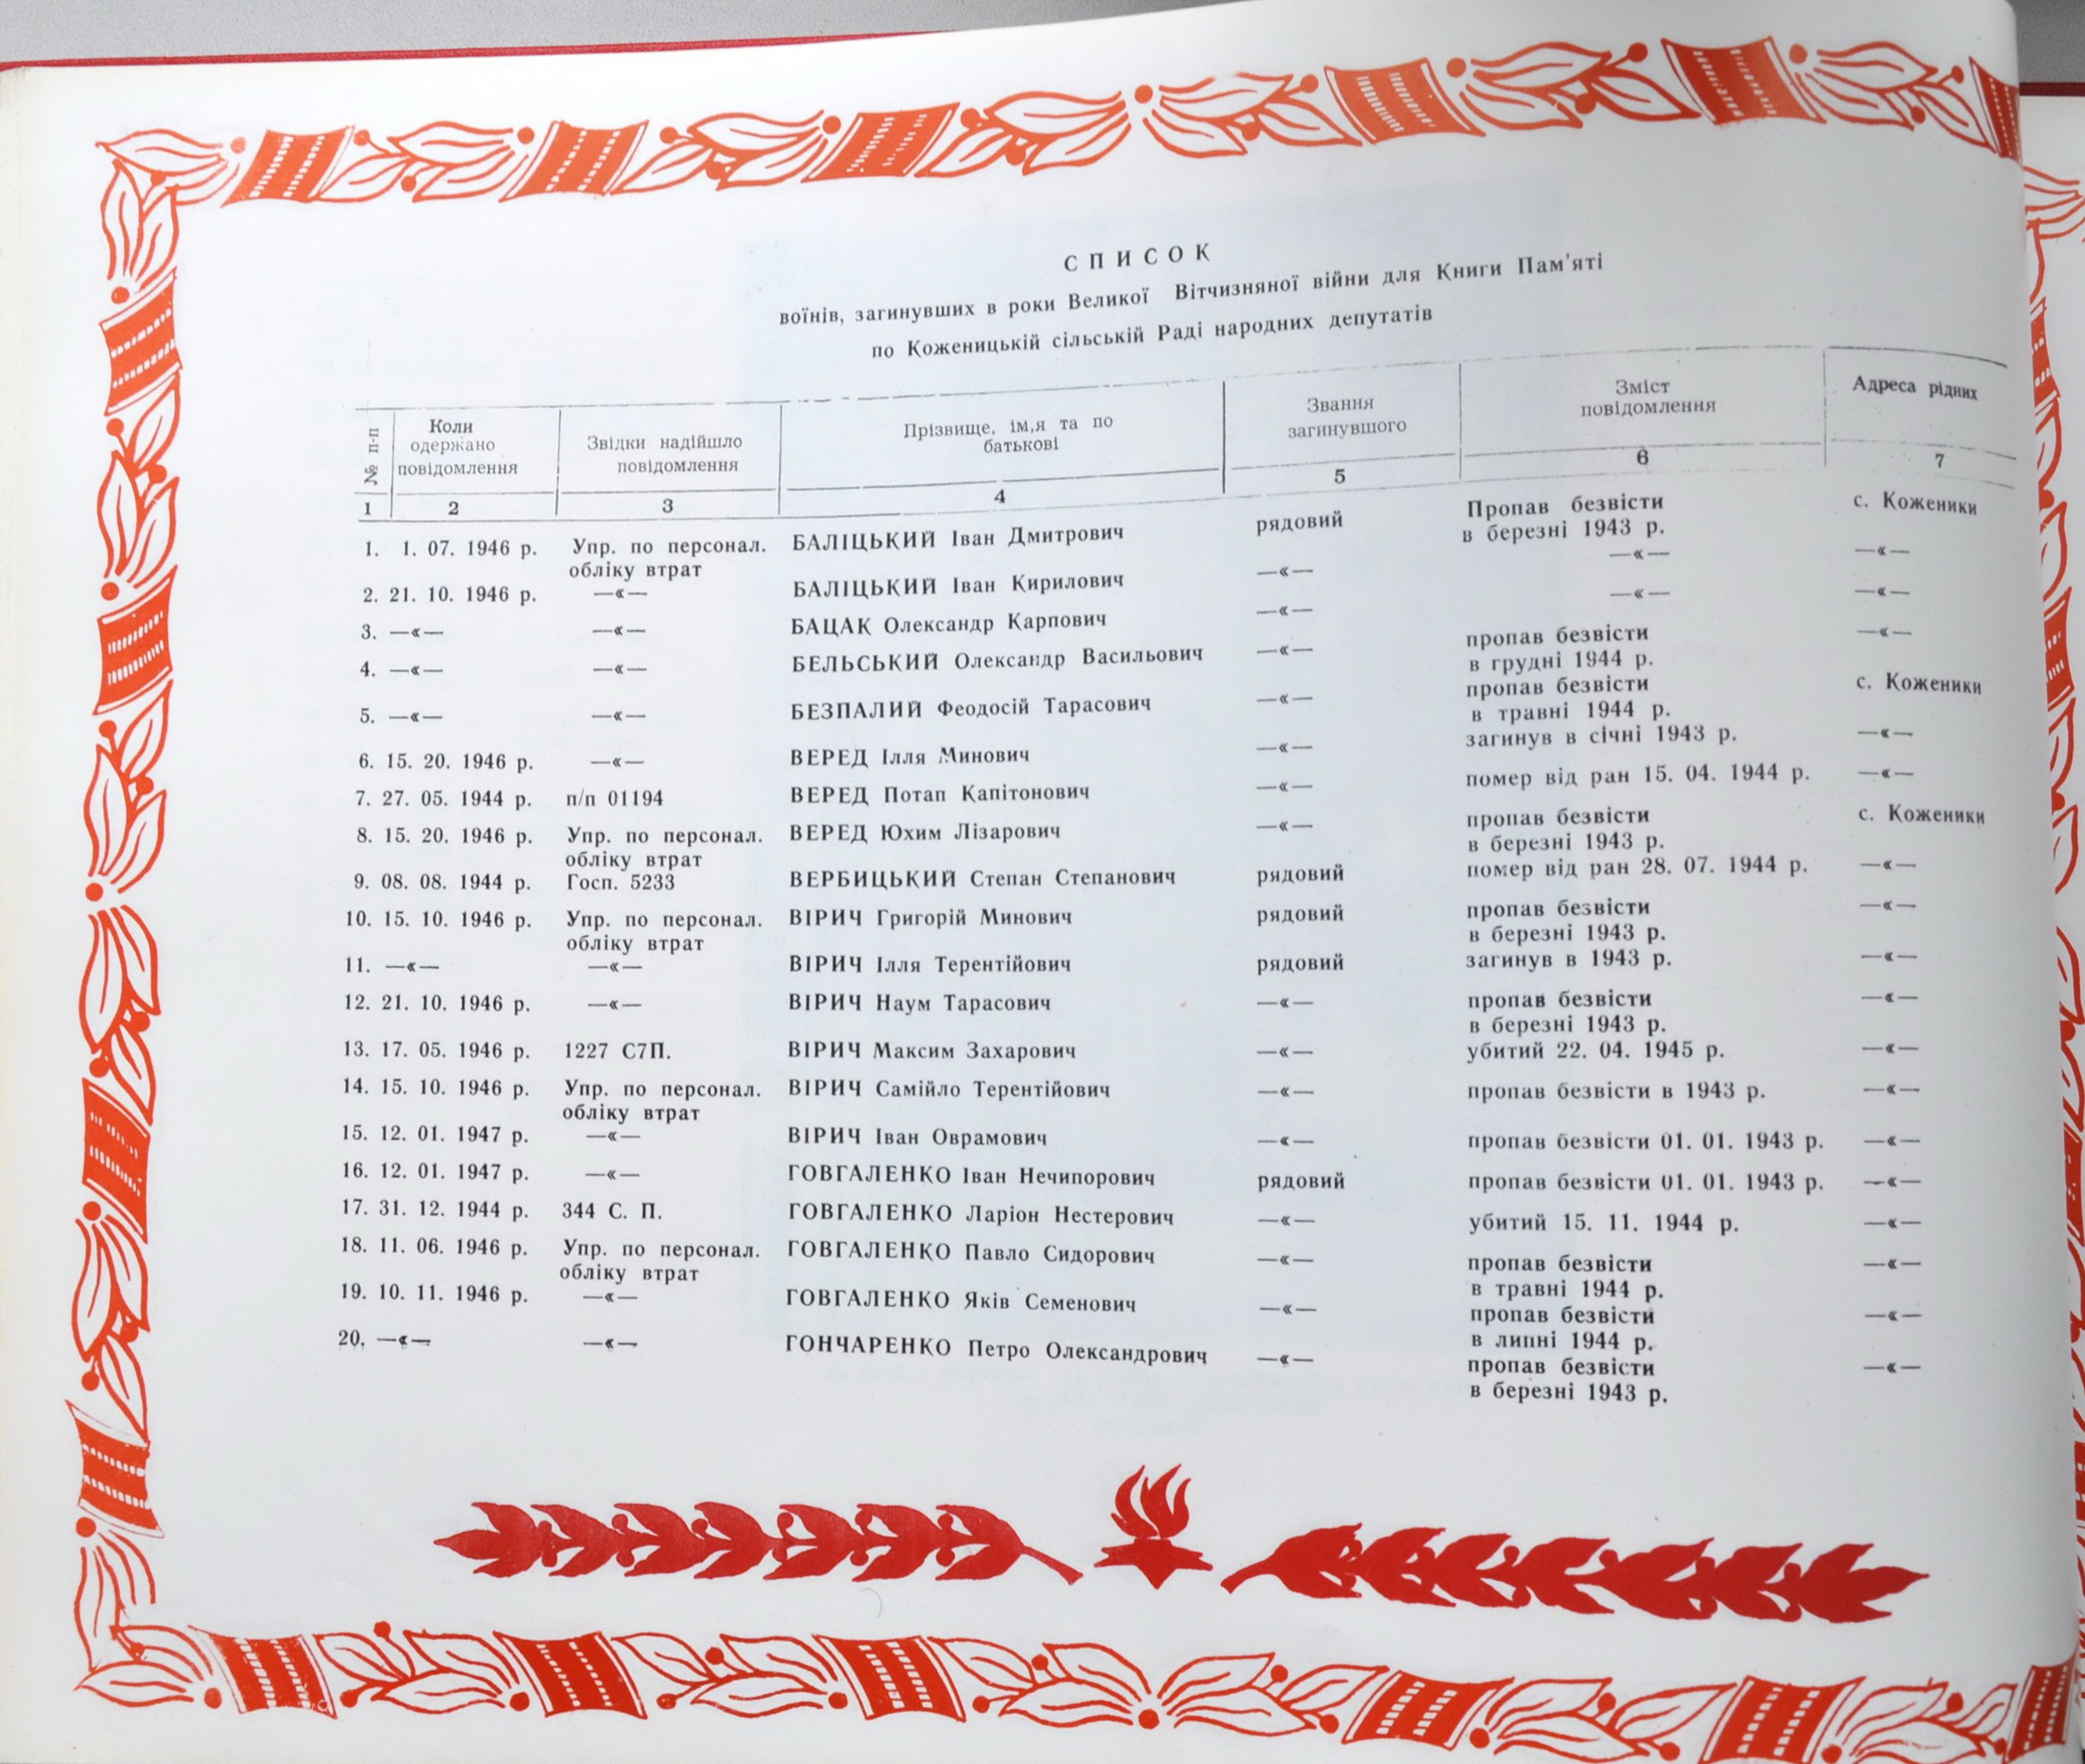 СПИСОК
воїнів, загинувших в роки Великої Вітчизняної війни для Книги Пам'яті
по Коженицькій сільській Раді народних депутатів
№ п-п | Коли одержано повідомлення | Звідки надійшло повідомлення | Прізвище, ім,я та по батькові | Звання загинувшого | Зміст повідомлення | Адреса рідних
1 2 3 4 5 6 7
1. 1. 07. 1946 р. Упр. по персонал. обліку втрат БАЛІЦЬКИЙ Іван Дмитрович рядовий Пропав безвісти в березні 1943 р. с. Коженики
2. 21. 10. 1946 р. —«— БАЛІЦЬКИЙ Іван Кирилович —«— —«— —«—
3. —«— —«— БАЦАК Олександр Карпович —«— —«— —«—
4. —«— —«— БЕЛЬСЬКИЙ Олександр Васильович —«— пропав безвісти в грудні 1944 р. —«—
5. —«— —«— БЕЗПАЛИЙ Феодосій Тарасович —«— пропав безвісти в травні 1944 р. с. Коженики
6. 15. 20. 1946 р. —«— ВЕРЕД Ілля Минович —«— загинув в січні 1943 р. —«—
7. 27. 05. 1944 р. п/п 01194 ВЕРЕД Потап Капітонович —«— помер від ран 15. 04. 1944 р. —«—
8. 15. 20. 1946 р. Упр. по персонал. обліку втрат ВЕРЕД Юхим Лізарович —«— пропав безвісти в березні 1943 р. с. Коженики
9. 08. 08. 1944 р. Госп. 5233 ВЕРБИЦЬКИЙ Степан Степанович рядовий помер від ран 28. 07. 1944 р. —«—
10. 15. 10. 1946 р. Упр. по персонал. обліку втрат ВІРИЧ Григорій Минович рядовий пропав безвісти в березні 1943 р. —«—
11. —«— —«— ВІРИЧ Ілля Терентійович рядовий загинув в 1943 р. —«—
12. 21. 10. 1946 р. —«— ВІРИЧ Наум Тарасович —«— пропав безвісти в березні 1943 р. —«—
13. 17. 05. 1946 р. 1227 С7П. ВІРИЧ Максим Захарович —«— убитий 22. 04. 1945 р. —«—
14. 15. 10. 1946 р. Упр. по персонал. обліку втрат ВІРИЧ Самійло Терентійович —«— пропав безвісти в 1943 р. —«—
15. 12. 01. 1947 р. —«— ВІРИЧ Іван Оврамович —«— пропав безвісти 01. 01. 1943 р. —«—
16. 12. 01. 1947 р. —«— ГОВГАЛЕНКО Іван Нечипорович рядовий пропав безвісти 01. 01. 1943 р. —«—
17. 31. 12. 1944 р. 344 С. П. ГОВГАЛЕНКО Ларіон Нестерович —«— убитий 15. 11. 1944 р. —«—
18. 11. 06. 1946 р. Упр. по персонал. обліку втрат ГОВГАЛЕНКО Павло Сидорович —«— пропав безвісти в травні 1944 р. —«—
19. 10. 11. 1946 р. —«— ГОВГАЛЕНКО Яків Семенович —«— пропав безвісти в липні 1944 р. —«—
20. —«— —«— ГОНЧАРЕНКО Петро Олександрович —«— пропав безвісти в березні 1943 р. —«—